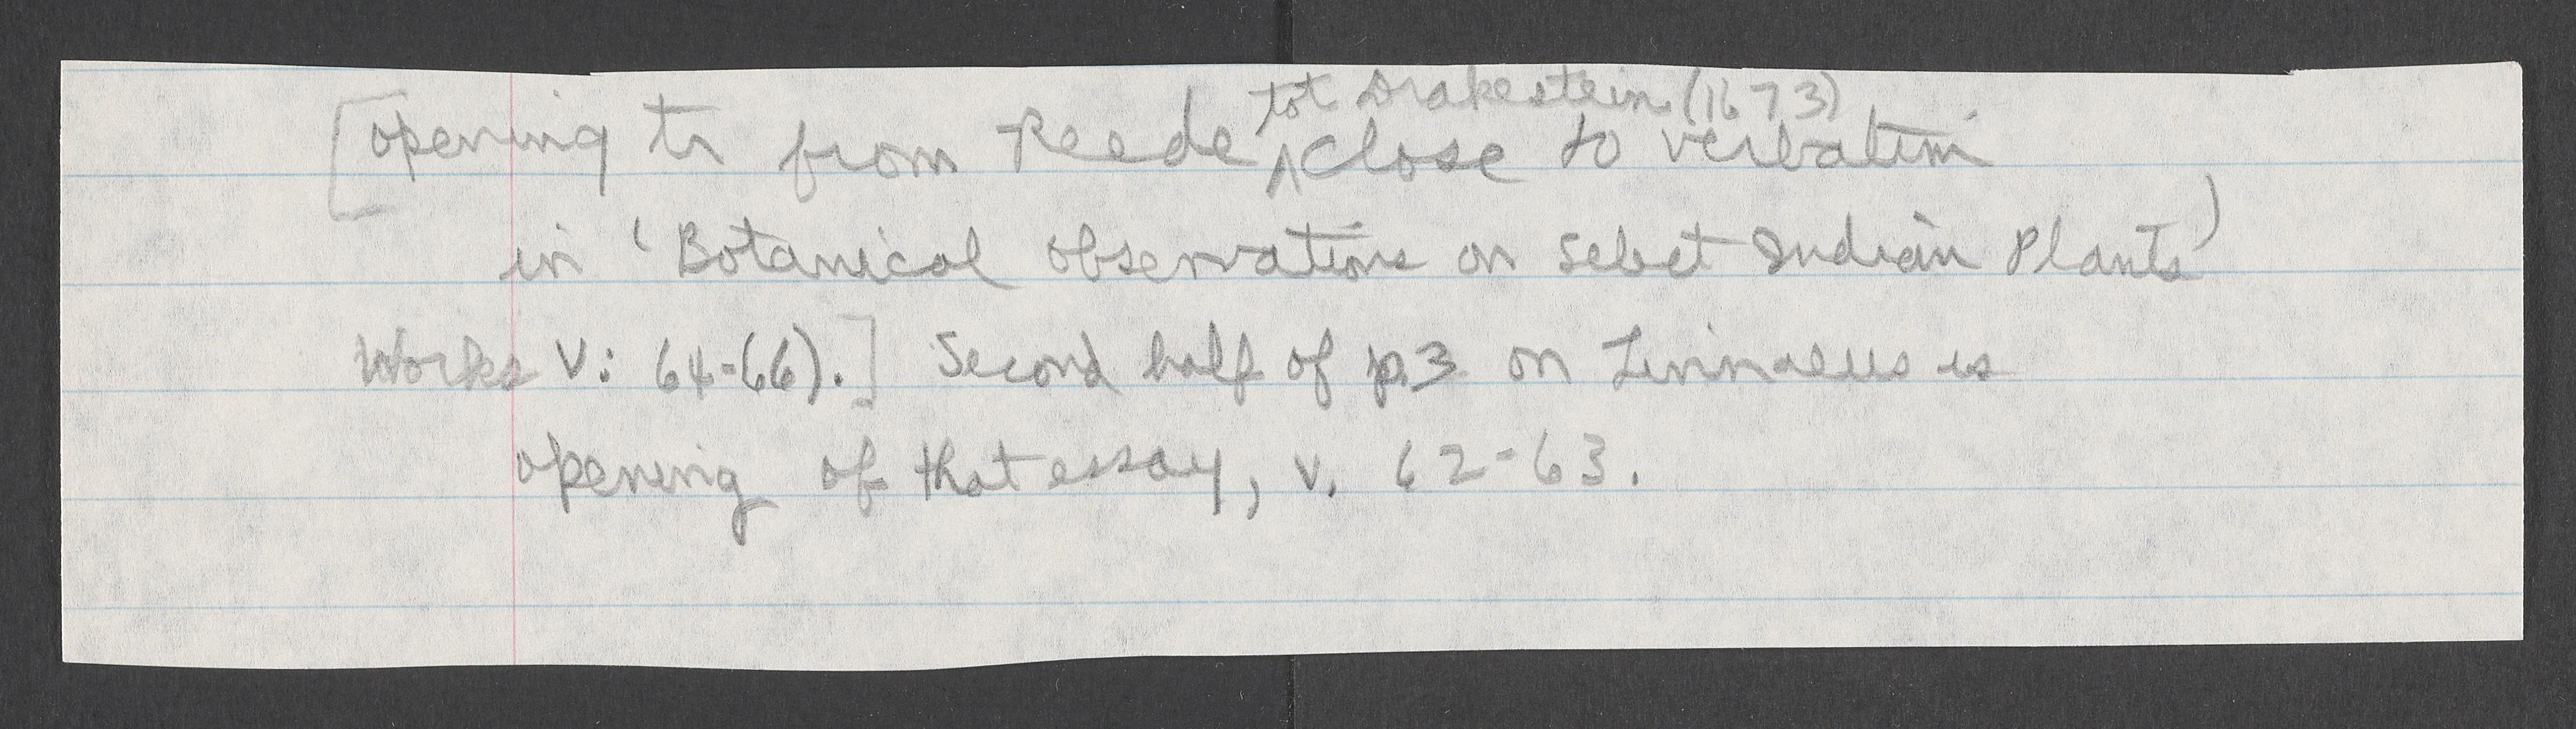 [opening tr from Reede ^ tot Drakestein (1673) close to verbatim
in 'Botanical observations on select Indian Plants'
Works V: 64-66).] Second half of p.3 on Linnaeus is
opening of that essay, v. 62-63.